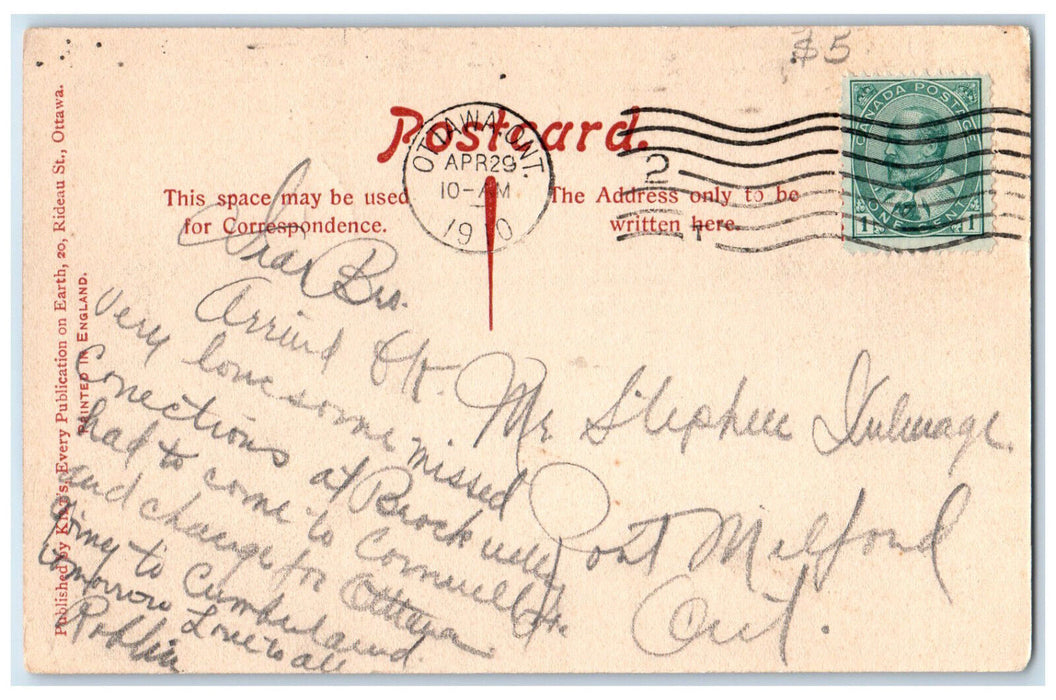 $5
Postcard.
This space may be used
for Correspondence.
The Address only to be
written here.
OTTAWA, ONT.
APR 29
10-AM
1910
2
CANADA POSTAGE
1 ONE CENT 1
Published by King's, Every Publication on Earth, 20, Rideau St., Ottawa.
PRINTED IN ENGLAND.
Dear Bro.
Arrived OK.
Very lonesome missed
Conections at Brockville
had to come to Cornwell
and change for Ottawa.
Going to Cumberland
tomorrow Love to all
Roblin
Mr Stephen
Port Milford
Ont.